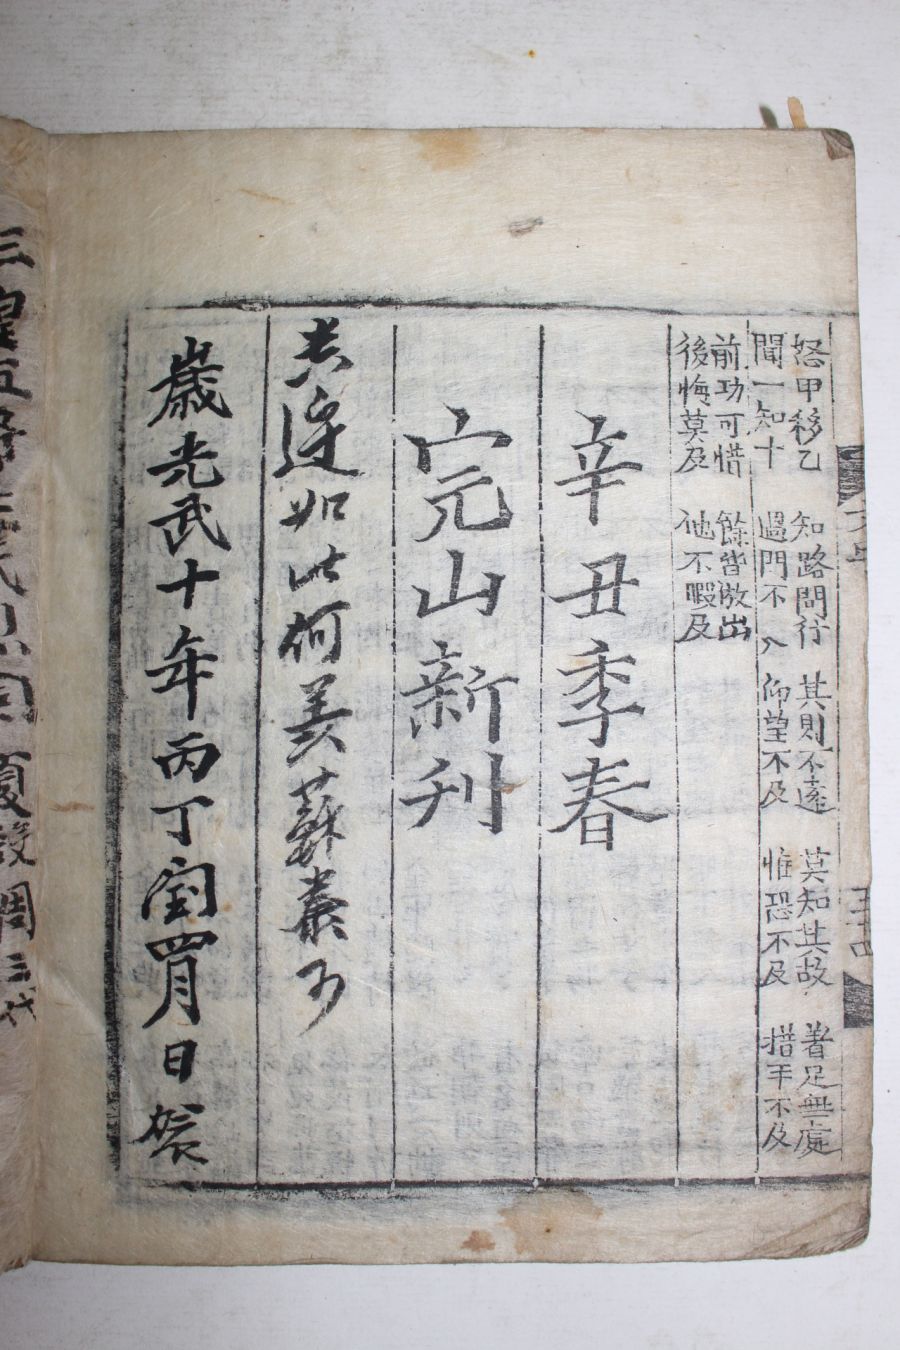 怒甲移乙 知路問行 其則不遠 莫知其故 着足無處
聞一知十 過門不入 仰望不及 惟恐不及 措手不及
前功可惜 餘皆倣此
後悔莫及 他不暇及
辛丑季春
完山新刊
如此何羙蘇秦
歲光武十年丙丁閏四月日
三皇五帝
夏殷周三代